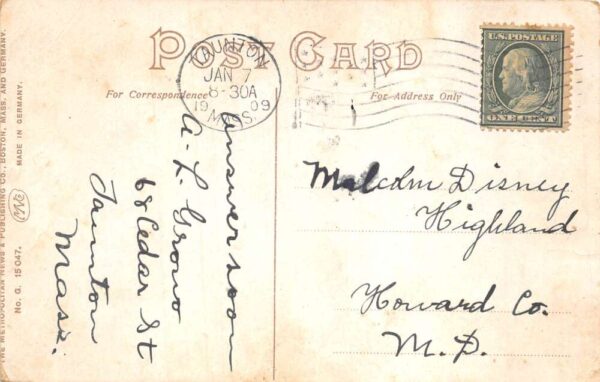 POST CARD
For Correspondence
For Address Only
TAUNTON
JAN 7
8-30A
1909
MASS.
U.S. POSTAGE
ONE CENT
Malcolm Disney
Highland
Howard Co.
M.D.
answer soon
A. L. Grono
68 Cedar St
Taunton
Mass.
THE METROPOLITAN NEWS & PUBLISHING CO., BOSTON, MASS. AND GERMANY.
No. G. 15047.
MADE IN GERMANY.